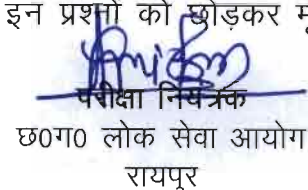 इन प्रश्नों को छोड़कर
परीक्षा नियंत्रक
छ0ग0 लोक सेवा आयोग
रायपुर